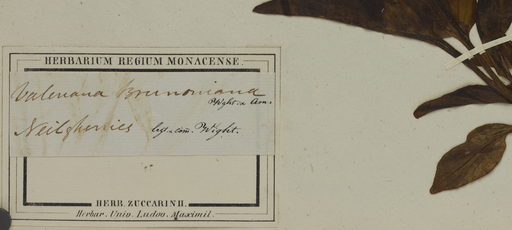 HERBARIUM REGIUM MONACENSE.
Valeriana Brunoniana
Wght. & Arn.
Neilgherries leg. & com. Wight.
HERB. ZUCCARINII.
Herbar. Univ. Ludov. Maximil.